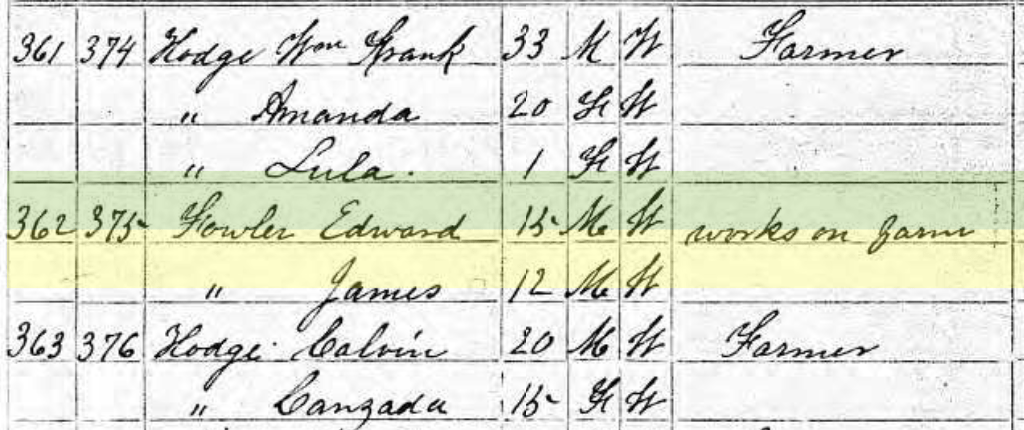 361 374 Hodge Wm Frank 33 M W Farmer
" Amanda 20 F W
" Lula. 1 F W
362 375 Fowler Edward 15 M W works on farm
" James 12 M W
363 376 Hodge Calvin 20 M W Farmer
" Canzada 15 F W